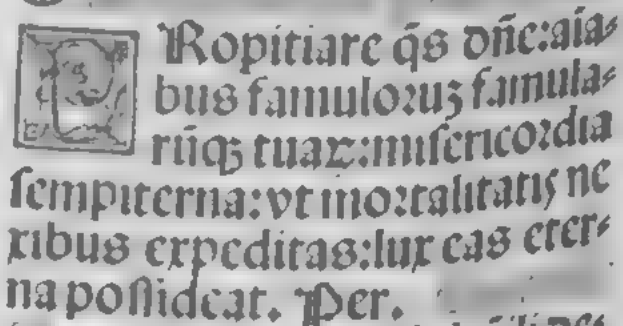 PRopitiare q̄s dn̄e:aīa⸗
bus famuloꝛuꝫ famula⸗
rūqꝫ tuaꝝ:miſericoꝛdia
ſempiterna:vt moꝛtalitatis ne
xibus expeditas:lux eas eter⸗
na poſſideat. Per.